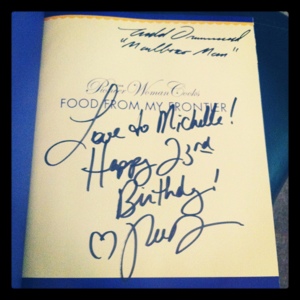 Ladd Drummond
"Marlboro Man"
Pioneer Woman Cooks
FOOD FROM MY FRONTIER
Love to Michelle!
Happy 23rd
Birthday!